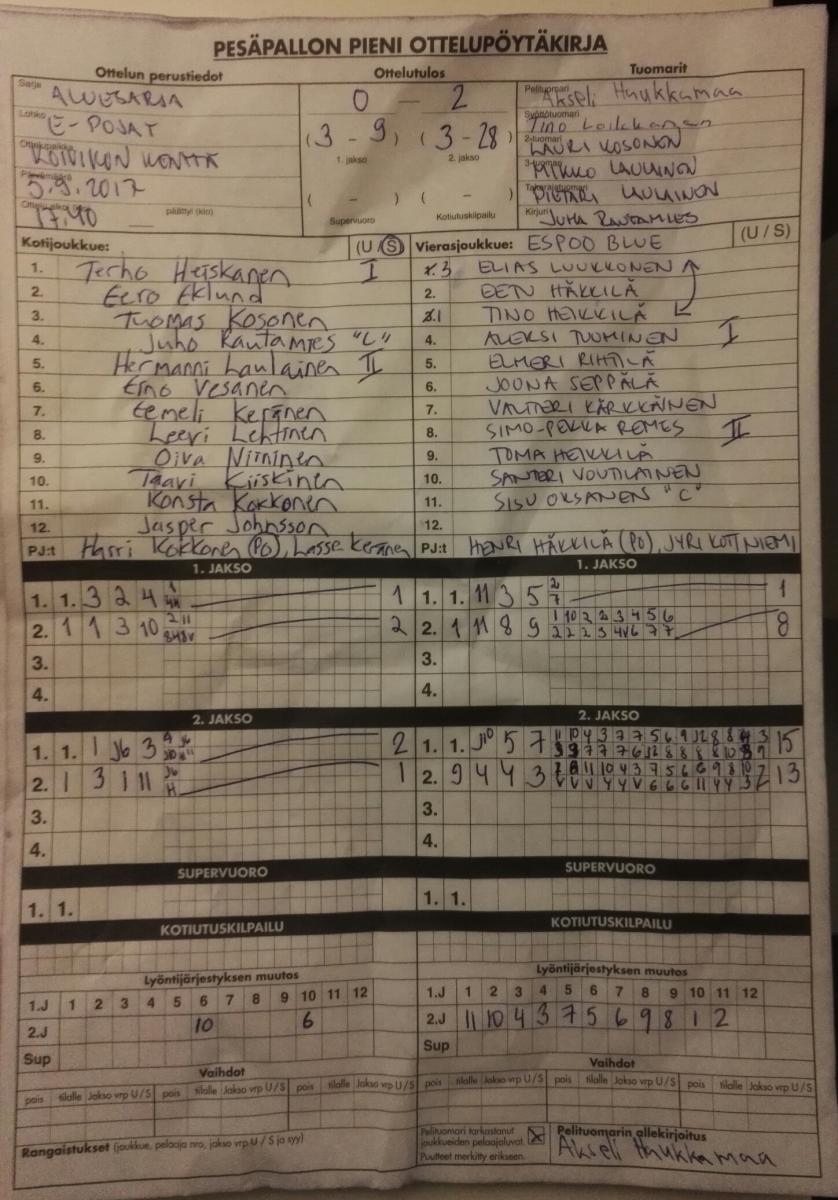 PESÄPALLON PIENI OTTELUPÖYTÄKIRJA
Ottelun perustiedot Ottelutulos Tuomarit
Sarja ALUESARJA
Lohko E-POJAT
KOIVIKON KENTTÄ
5.9.2017
17.40 päättyi (klo)
0 - 2
(3 - 9) (3 - 28)
1. jakso 2. jakso
( - ) ( - )
Supervuoro Kotiutuskilpailu
Pelituomari Akseli Haukkamaa
Syöttötuomari Tino
2-tuomari LAURI KOSONEN
3-tuomari MIKKO LAULAINEN
Takarajatuomari PIETARI LAULAINEN
Kirjuri JUHA RAUTAMIES
Kotijoukkue: (U / S)
1. Terho Heiskanen I
2. Eero Eklund
3. Tuomas Kosonen
4. Juho Rautamies "C"
5. Hermanni Laulainen II
6. Eino Vesanen
7. Eemeli Keränen
8. Leevi Lehtinen
9. Oiva Niininen
10. Taavi Kiiskinen
11. Konsta Kokkonen
12. Jasper Johnsson
PJ:t Harri Kokkonen (PO), Lasse Keränen
Vierasjoukkue: ESPOO BLUE (U / S)
1. 3 ELIAS LUUKKONEN
2. EETU HÄKKILÄ
3. 1 TINO HEIKKILÄ
4. ALEKSI TUOMINEN I
5. ELMERI RIHTILÄ
6. JOONA SEPPÄLÄ
7. VALTTERI KÄRKKÄINEN
8. SIMO-PEKKA REMES II
9. TOMA HEIKKILÄ
10. SANTERI VOUTILAINEN
11. SISU OKSANEN "C"
12.
PJ:t HENRI HÄKKILÄ (PO), JYRI KOTINIEMI
1. JAKSO 1. JAKSO
1. 1. 3 2 4 1
2. 1 1 3 10 2
3.
4.
1. 1. 11 3 5 2 7 1
2. 1 11 8 9 1 10 2 2 3 4 5 6 8
2 2 2 3 4V 6 7 7
3.
4.
2. JAKSO 2. JAKSO
1. 1. 1 J6 3 2
2. 1 3 1 11 J6 1
3.
4.
1. 1. J10 5 7 11 10 4 3 7 7 5 6 9 J2 8 8 4 3 15
2. 9 4 4 3 13
3.
4.
SUPERVUORO SUPERVUORO
1. 1. 1. 1.
KOTIUTUSKILPAILU KOTIUTUSKILPAILU
Lyöntijärjestyksen muutos
1.J 1 2 3 4 5 6 7 8 9 10 11 12
2.J 10 6
Sup
Lyöntijärjestyksen muutos
1.J 1 2 3 4 5 6 7 8 9 10 11 12
2.J 11 10 4 3 7 5 6 9 8 1 2
Sup
Vaihdot Vaihdot
pois tilalle Jakso vrp U / S pois tilalle Jakso vrp U / S pois tilalle Jakso vrp U / S
pois tilalle Jakso vrp U / S pois tilalle Jakso vrp U / S pois tilalle Jakso vrp U / S
Rangaistukset (joukkue, pelaaja nro, jakso vrp U / S ja syy)
Pelituomari tarkastanut
joukkueiden pelaajaluvat.
Puutteet merkitty erikseen.
Pelituomarin allekirjoitus
Akseli Haukkamaa